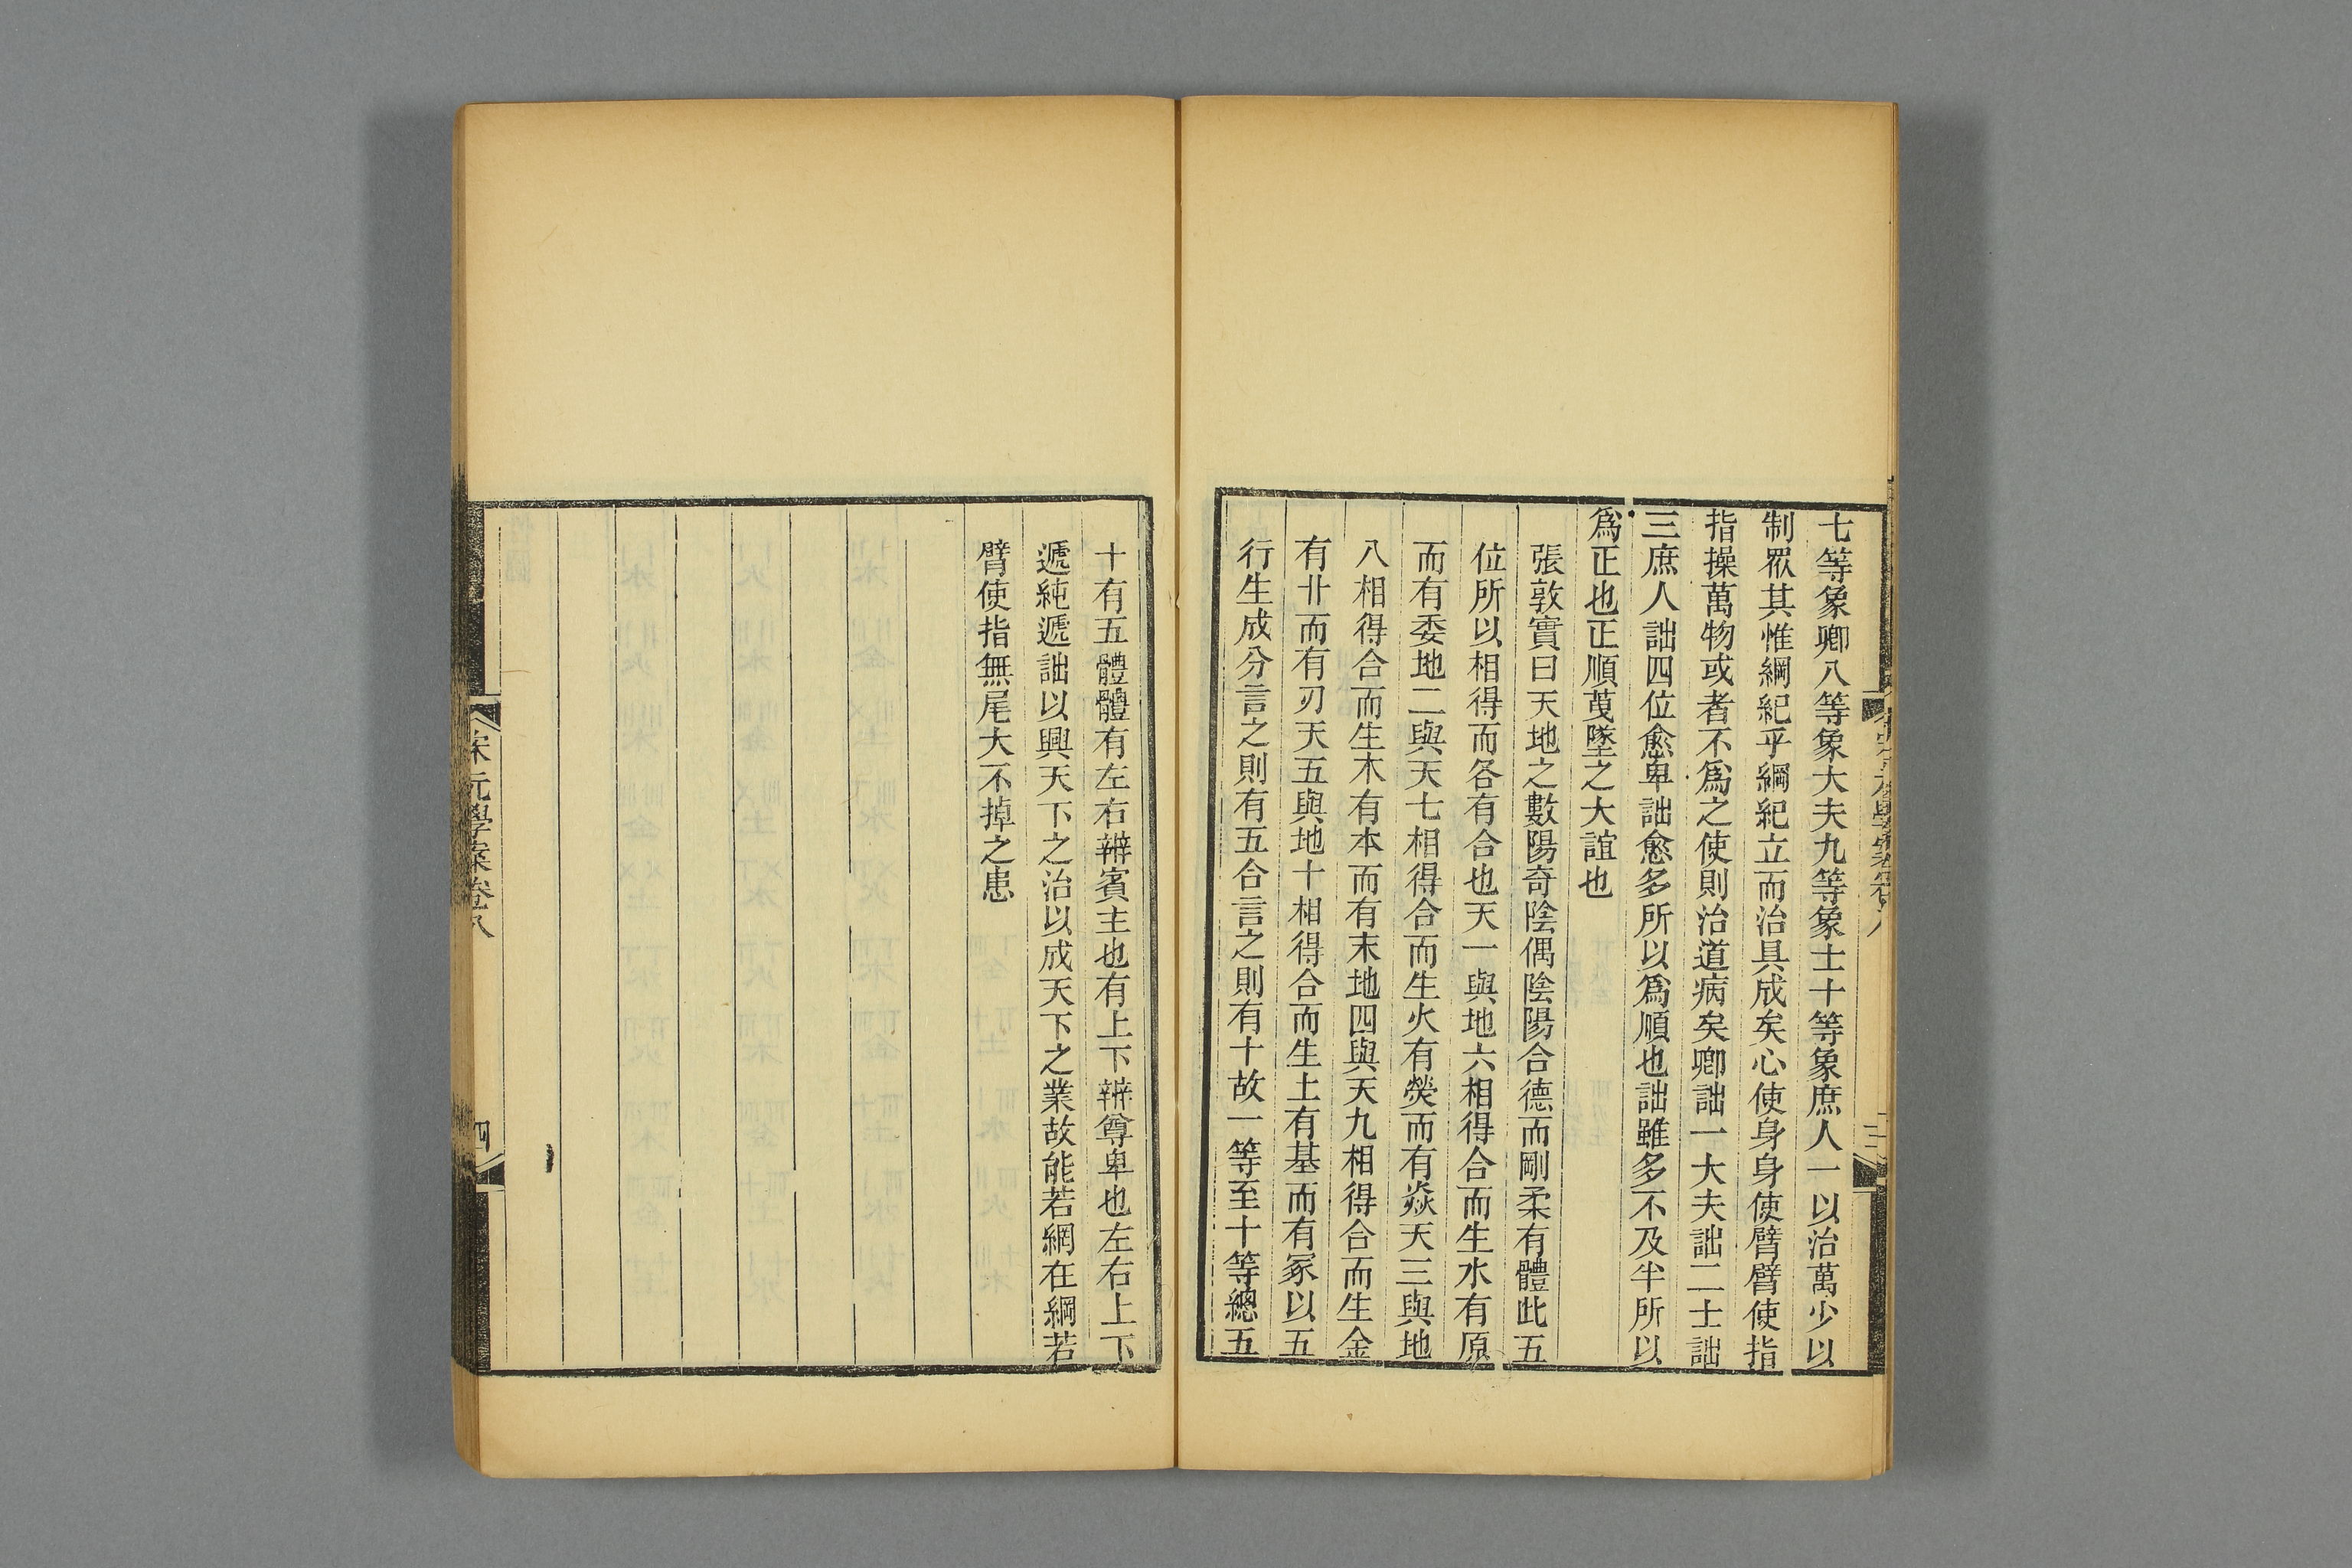 七等象卿八等象大夫九等象士十等象庶人一以治萬少以
制眾其惟綱紀乎綱紀立而治具成矣心使身身使臂臂使指
指操萬物或者不爲之使則治道病矣卿詘一大夫詘二士詘
三庶人詘四位愈卑詘愈多所以爲順也詘雖多不及半所以
爲正也正順莧墜之大誼也
張敦實曰天地之數陽奇陰偶陰陽合德而剛柔有體此五
位所以相得而各有合也天一與地六相得合而生水有原
而有委地二與天七相得合而生火有熒而有焱天三與地
八相得合而生木有本而有末地四與天九相得合而生金
有丱而有刃天五與地十相得合而生土有基而有冢以五
行生成分言之則有五合言之則有十故一等至十等總五
十有五體體有左右辨賓主也有上下辨尊卑也左右上下
遞純遞詘以興天下之治以成天下之業故能若網在綱若
臂使指無尾大不掉之患
宋元學案卷八
四